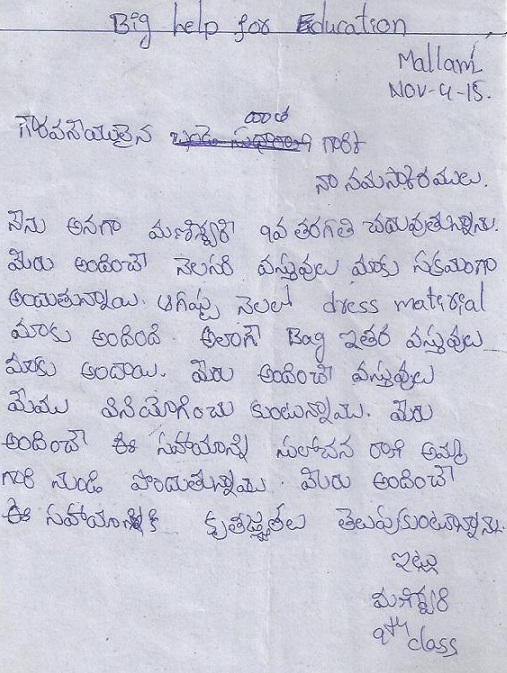 Big help for Education
Mallam
NOV-4-15.
దాత
గౌరవనీయులైన గారికి
నా నమస్కారములు.
నేను అనగా మణిశ్వరి 9వ తరగతి చదువుతున్నాను.
మీరు అందించే నెలసరి వస్తువులు మాకు సక్రమంగా
అందుతున్నాయి. ఆగష్టు నెలలో dress material
మాకు అందింది. అలాంగే Bag ఇతర వస్తువులు
మాకు అందాయి. మీరు అందించే వస్తువులు
మేము వినియోగించు కుంటున్నాము. మీరు
అందించే ఈ సహాయాన్ని సులోచన రాణి అమ్మ
గారి నుండి పొందుతున్నాము. మీరు అందించే
ఈ సహాయానికి కృతజ్ఞతలు తెలుపుకుంటున్నాను.
ఇట్లు
మణిశ్వరి
9th class